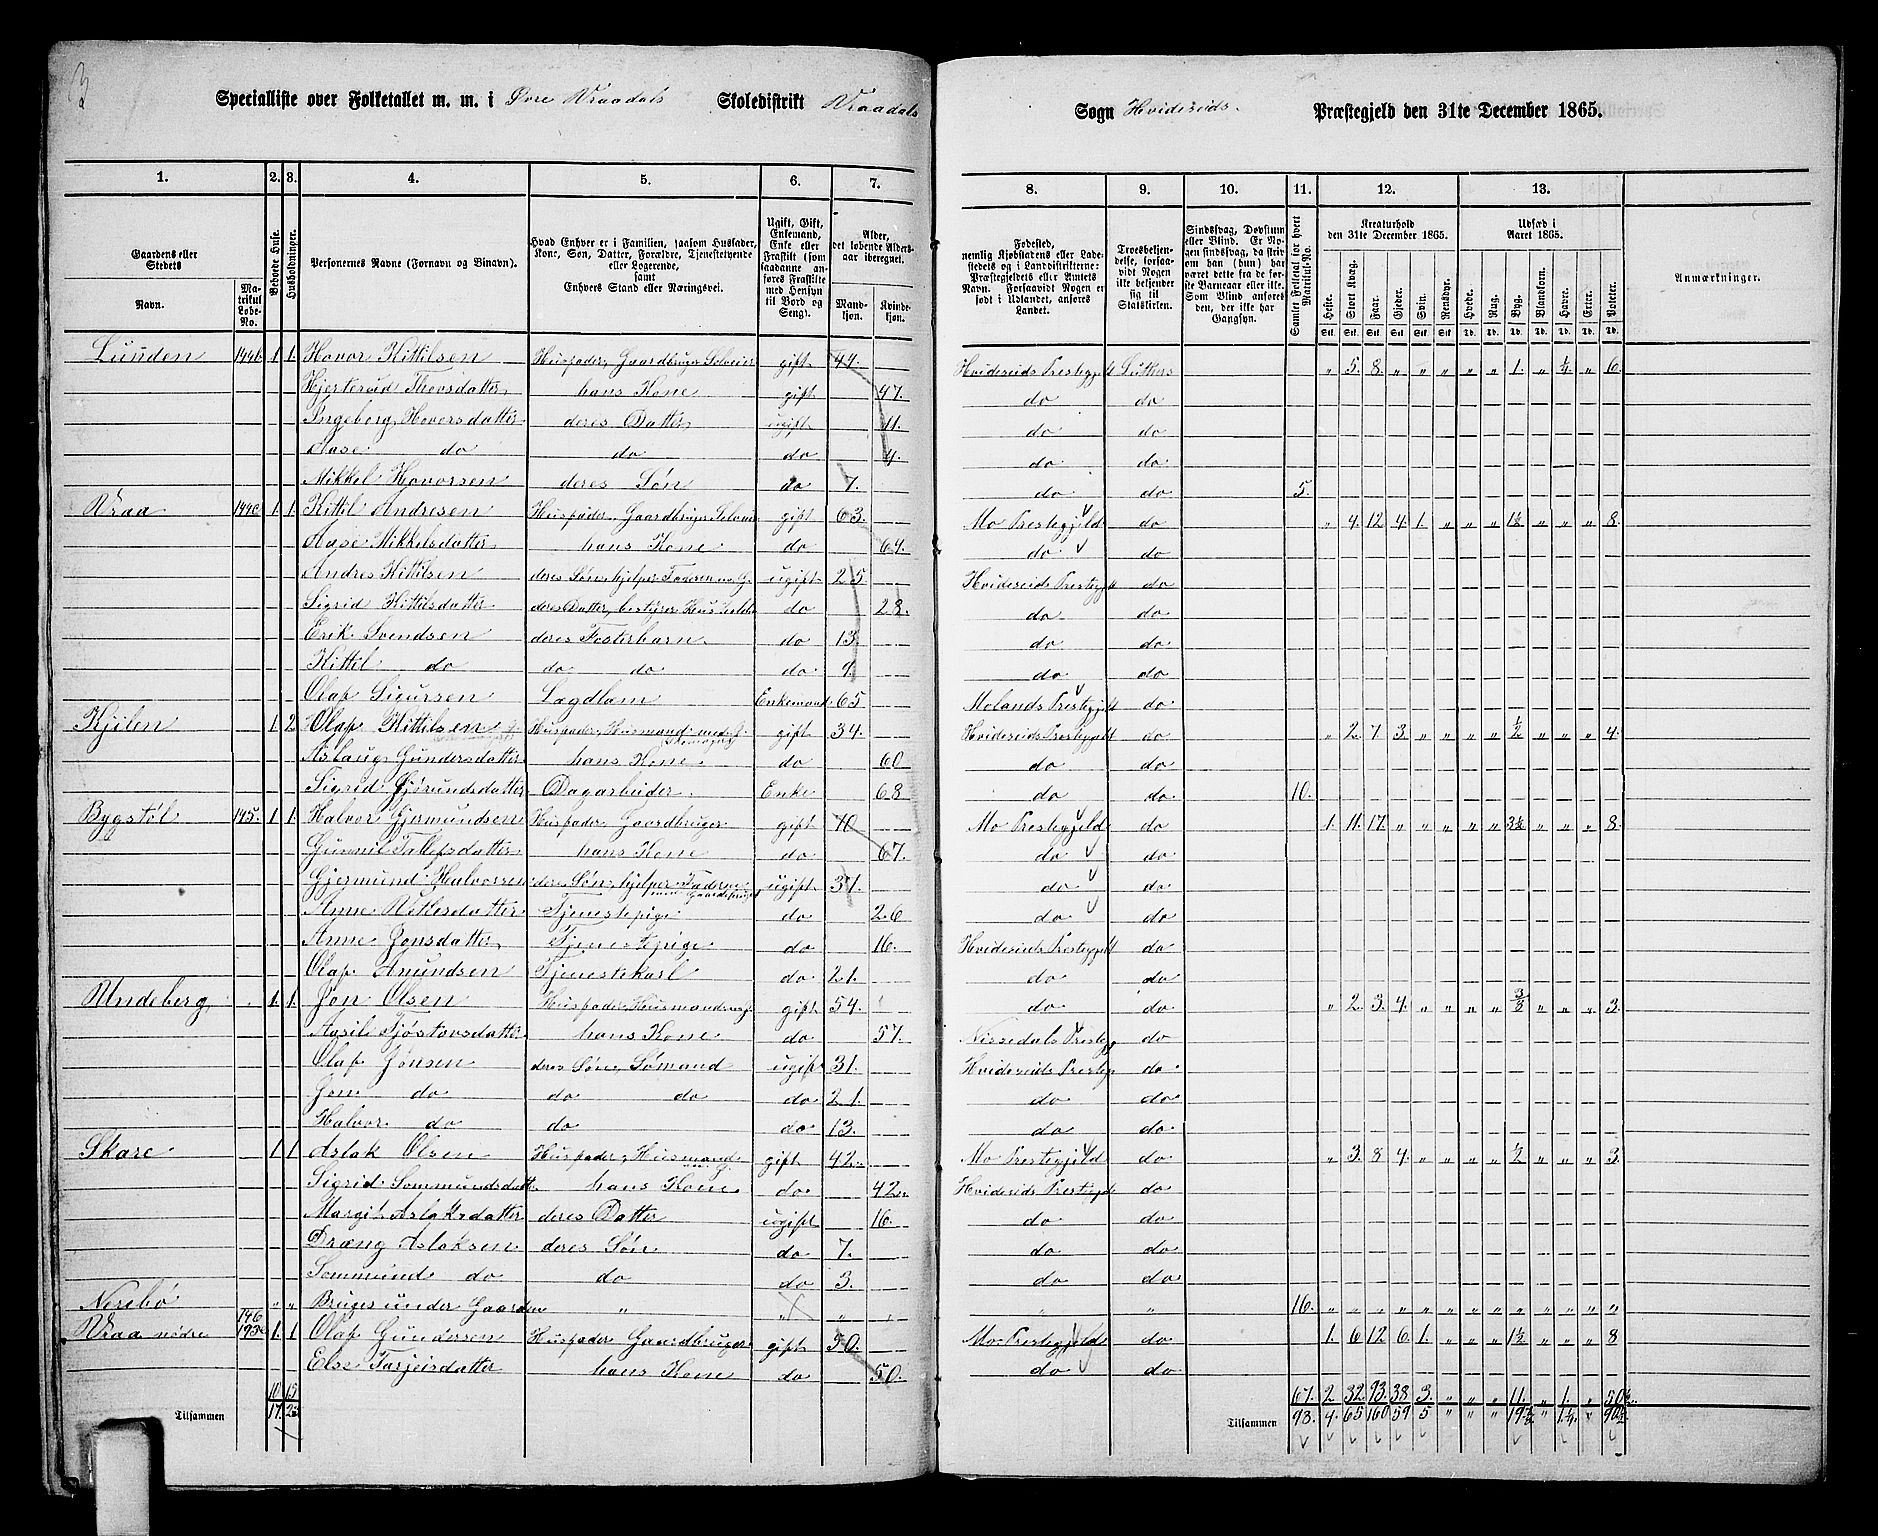 3
Specialliste over Folketallet m. m. i Øvre Vraadals Skoledistrikt Vraadals Sogn Hvideseids Præstegjeld den 31te December 1865.
1. 2. 3. 4. 5. 6. 7. 8. 9. 10. 11. 12. 13.
Gaardens eller Stedets Navn. Matrikul Løbe-No. Beboede Huse. Husholdninger. Personernes Navne (Fornavn og Binavn). Hvad Enhver er i Familien, saasom Husfader, Kone, Søn, Datter, Forældre, Tjenestetyende eller Logerende, samt Enhvers Stand eller Næringsvei. Ugift, Gift, Enkemand, Enke eller Fraskilt (som saadanne anføres Fraskilte med Hensyn til Bord og Seng). Alder, det løbende Alders-aar iberegnet. Mandkjøn. Kvindekjøn. Fødested, nemlig Kjøbstadens eller Ladestedets og i Landdistrikterne: Præstegjeldets eller Amtets Navn. Forsaavidt Nogen er født i Udlandet, anføres Landet. Troesbekjendelse, forsaavidt Nogen ikke bekjender sig til Statskirken. Sindssvag, Døvstum eller Blind. Er Nogen sindssvag, da skriv om han (hun) har været dette fra de første Barneaar eller ikke. Som Blind anføres den, der ikke har Gangsyn. Samlet Folketal for hvert Matrikul-No. Kreaturhold den 31te December 1865. Heste. Stort Kvæg. Faar. Gjeder. Svin. Rensdyr. Udsæd i Aaret 1865. Hvede. Rug. Byg. Blandkorn. Havre. Erter. Poteter. Anmærkninger.
Stk. Stk. Stk. Stk. Stk. Stk. Td. Td. Td. Td. Td. Td. Td.
Lunden 144b 1 1. Hovor Kittilsen Husfader, Gaardbruger Selveier gift 44. Hvideseids Prestegjelt Luthers „ 5. 8. „ „ „ „ „ 1. „ ¼ „ 6.
Hjertrud Thorsdatter hans Kone gift 47. do do
Ingeborg Hovorsdatter deres Datter ugift 11. do do
Aase do do do 9. do do
Mikkel Hovorsen deres Søn do 7. do do 5.
Vraa 144c 1. 1. Kittil Andresen Husfader, Gaardbruger Selveier gift 63. Mo Prestegjeld do „ 4. 12 4. 1. „ „ „ 1½ „ „ „ 8.
Aase Mikkelsdatter hans Kone do 64. do do
Andres Kittilsen deres Søn hjelper Faderen m. G. ugift 25 Hvideseids Prestegjelt do
Sigrid Kittilsdatter deres Datter, bestyrer Husholdn do 28. do do.
Erik Svendsen deres Fosterbarn. do 13. do do.
Kittil do do do do. 9. do do.
Olaf Sigursen Lægdlem Enkemand 65 Molands Prestegjelt do
Kjilen 1 2 Olaf Kittilsen Husfader, Husmand med J. gift 34. Hvideseids Prestegjelt do „ 2. 7 3. „ „ „ „ ½ „ „ „ 4.
Aslaug Gundersdatter hans Kone do 60 do do.
Sigrid Gjørundsdatter Dagarbeider. Enke 68 do do. 10.
Bygstøl 145. 1. 1. Halvor Gjermundsen Husfader, Gaardbruger gift 70 Mo Prestegjeld do 1. 11. 17. „ „ „ „ „ 3½ „ „ „ 8.
Gunnil Tallefsdatter hans Kone do 67. do do.
Gjermund Halvorsen deres Søn, hjelper Faderen med Gaardsbruget ugift 31. do do.
Anne Ketilsdatter Tjenestepige do 26 do do.
Anne Jonsdatter Tjenestepige do 16. Hvideseids Prestegjelt do
Olaf Anundsen Tjenestekarl do 21. do do
Undeberg 1. 1. Jon Olsen Husfader Husmand m. j. gift 54. do do. „ 2. 3. 4. „ „ „ „ „ „ „ 3.
Aasil Tjøstovsdatter hans Kone do 57. Nissedals Prestegj do
Olaf Jonsen deres Søn, Sømand ugift 31. Hvideseids Prestegj do.
Jon do do do do 21. do do.
Halvor do do do 13. do do.
Skare 1 1 Aslak Olsen Husfader, Husmand gift 42. Mo Prestegjeld do. „ 3. 8 4. „ „ „ „ ½ „ „ „ 3.
Sigrid Sommundsdatt hans Kone. do. 42. Hvideseids Prestegj do.
Margit Aslaksdatter deres Datter ugift 16. do do.
Dræng Aslaksen deres Søn do 7. do do.
Sommund do do do 3. do do.
Nesebø „ „ Bruges under Gaarden „ „ „ „ „ „ 16. „ „ „ „ „ „ „ „ „ „ „ „ „
146
Vraa nedre 193c 1. 1 Olaf Gundersen Husfader Gaardbruger gift 50. Mo Prestegjeld do. 1. 6 12 6. 1. „ „ „ 1½ „ „ „ 8
Else Tarjeisdatter hans Kone do 50. do do.
10 15 67. 2 32 93. 38 3. „ „ „ 11 „ 1. „ 50½
Tilsammen 17. 23 Tilsammen 98. 4. 65 160 59 5 „ „ „ 19½ „ 1¼ „ 90½